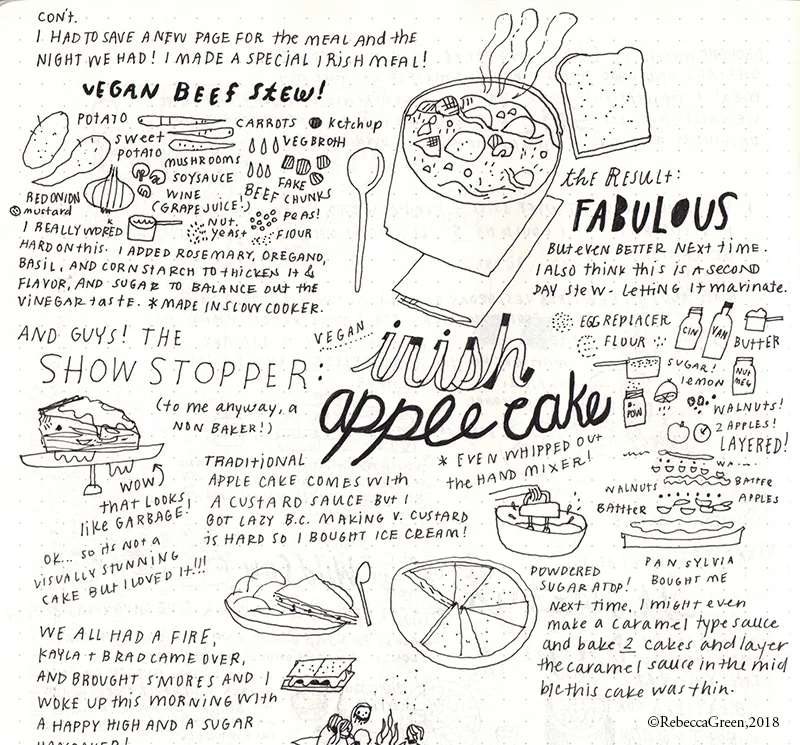 CON'T.
I HAD TO SAVE A NEW PAGE FOR THE MEAL AND THE
NIGHT WE HAD! I MADE A SPECIAL IRISH MEAL!
VEGAN BEEF STEW!
POTATO
CARROTS
KETCHUP
SWEET
POTATO
MUSHROOMS
SOYSAUCE
WINE
(GRAPE JUICE!)
VEGBROTH
FAKE
BEEF CHUNKS
RED ONION
MUSTARD
NUT.
YEAST
PEAS!
FLOUR
I REALLY WORED *
HARD ON THIS. I ADDED ROSEMARY, OREGANO,
BASIL, AND CORNSTARCH TO THICKEN IT &
FLAVOR, AND SUGAR TO BALANCE OUT THE
VINEGAR TASTE. *MADE IN SLOW COOKER.
the RESULT:
FABULOUS
BUT EVEN BETTER NEXT TIME.
I ALSO THINK THIS IS A SECOND
DAY STEW - LETTING IT MARINATE.
AND GUYS! THE
SHOW STOPPER:
(to me anyway, a
NON BAKER!)
VEGAN
irish
apple cake
EGG REPLACER
FLOUR
CIN
VAN
BUTTER
SUGAR!
lemon
NUT
MEG
B.
POW
WALNUTS!
2 APPLES!
LAYERED!
WALNUTS
BATTER
APPLES
BATTTER
PAN SYLVIA
BOUGHT ME
* EVEN WHIPPED OUT
the HAND MIXER!
WOW
THAT LOOKS
like GARBAGE!
OK... SO ITS NOT A
VISUALLY STUNNING
CAKE BUT I LOVED IT!!!
TRADITIONAL
APPLE CAKE COMES WITH
A CUSTARD SAUCE BUT I
GOT LAZY B.C. MAKING V. CUSTARD
IS HARD SO I BOUGHT ICE CREAM!
POWDERED
SUGAR ATOP!
Next time, I might even
make a caramel type sauce
and bake 2 cakes and layer
the caramel sauce in the mid
b/c this cake was thin.
WE ALL HAD A FIRE,
KAYLA + BRAD CAME OVER,
AND BROUGHT S'MORES AND I
WOKE UP THIS MORNING WITH
A HAPPY HIGH AND A SUGAR
HANGOVER!
©RebeccaGreen,2018